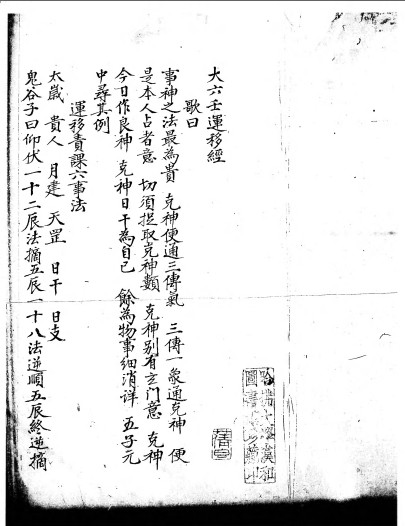 大六壬運移經
歌曰
事神之法最為貴　克神便通三傳氣　三傳一象通克神　便
是本人占者意　切須捉取克神類　克神别有玄門意　克神
今日作良神　克神日干為自己　餘為物事細消详　五子元
中尋其例
運移责課六事法
太歲　貴人　月建　天罡　日干　日支
鬼谷子曰仰伏一十二辰法摘五辰一十八法逆順五辰終逆摘